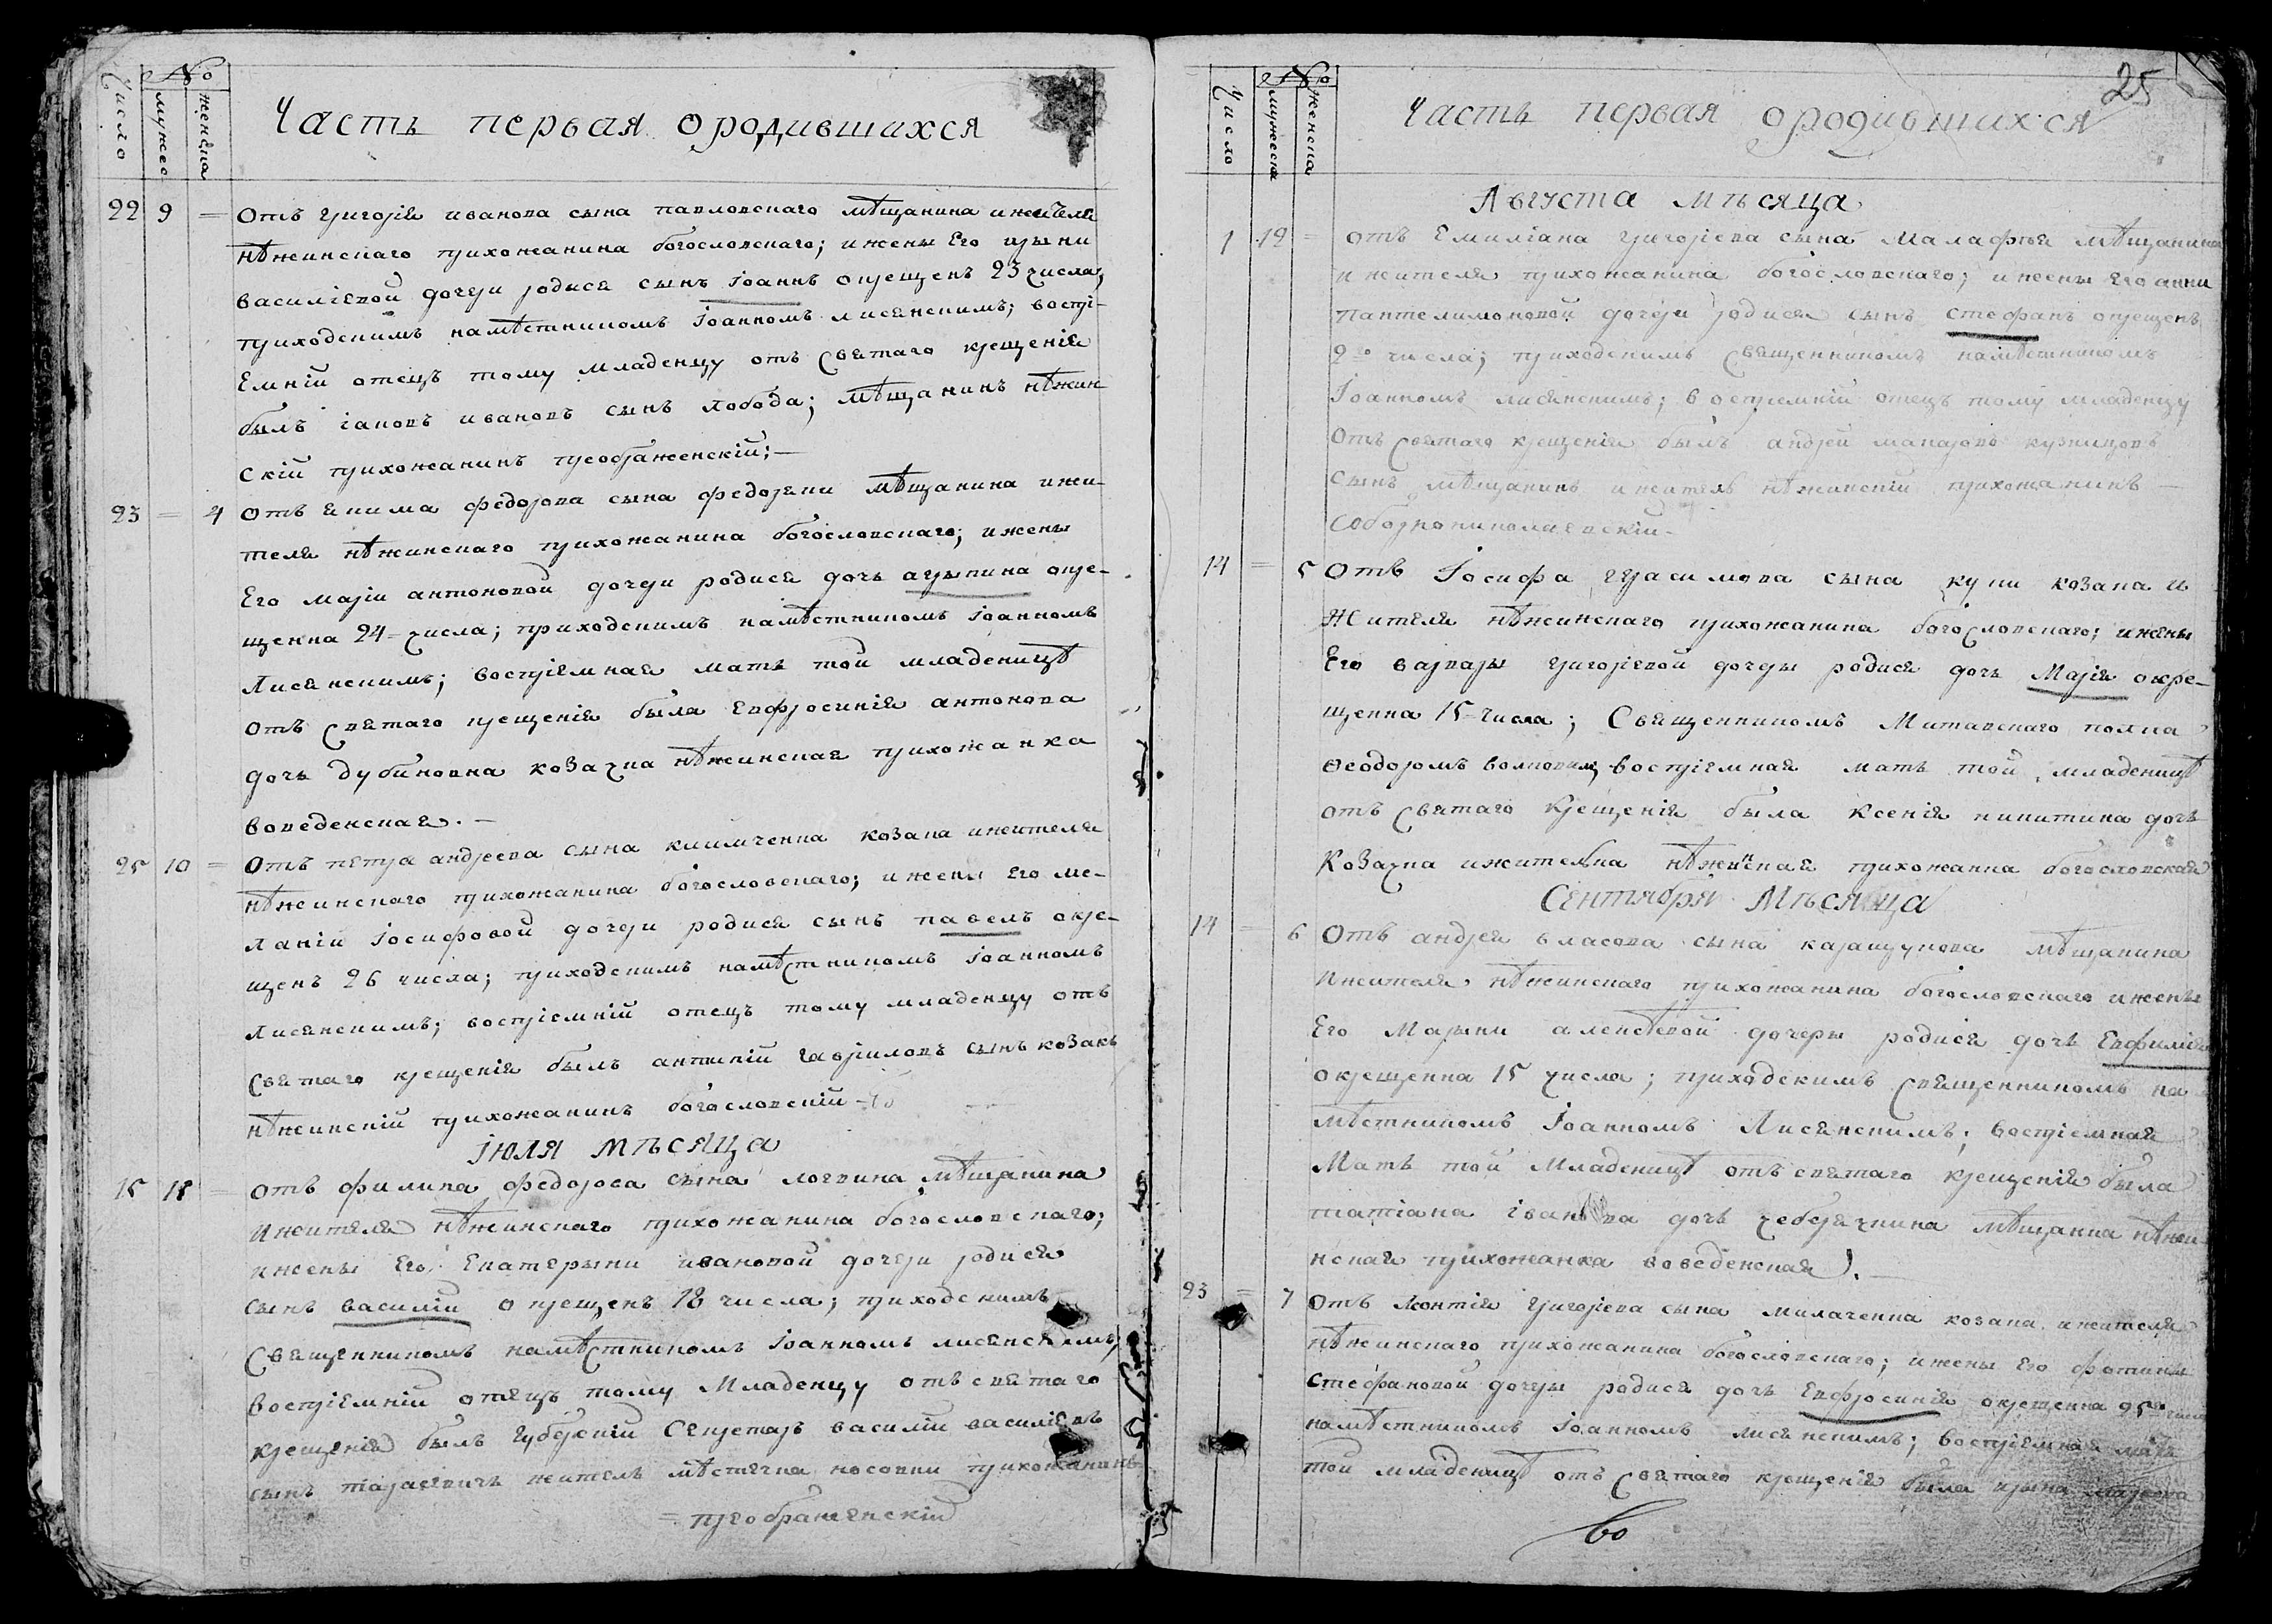 №
Число
мужеска
женска
Часть первая ородившихся
22 9 = Отъ григорія иванова сына павловскаго мѣщанина ижителя
нѣжинскаго прихожанина богословскаго; ижены Его ирыни
василіевой дочери родися сынъ Іоаннъ окрещенъ 23 числа;
приходскимъ намѣстникомъ Іоанномъ лисянскимъ; воспрі-
Емній отецъ тому младенцу отъ святаго крещенія
былъ іаковъ ивановъ сынъ лобода; мѣщанинъ нѣжин
скій прихожанинъ преображенскій;—
23 = 4 Отъ якима федорова сына федоряки мѣщанина ижи-
теля нѣжинскаго прихожанина богословскаго; ижены
Его маріи антоновой дочери родися дочь агрыпина окре-
щенна 24 = числа; приходскимъ намѣстникомъ Іоанномъ
Лисянскимъ; воспріемная мать той младеницѣ
отъ святаго крещенія была Евфросинія антонова
дочь дубиновна козачка нѣжинская прихожанка
воведенская.—
25 10 = Отъ петра андреева сына климченка козака ижителя
нѣжинскаго прихожанина богословскаго; ижены Его ме-
ланіи Іосифовой дочери родися сынъ павелъ окре-
щенъ 26 числа; приходскимъ намѣстникомъ Іоанномъ
Лисянскимъ; воспріемній отецъ тому младенцу отъ
святаго крещенія былъ антипій гавриловъ сынъ козакъ
нѣжинскій прихожанинъ богословскій—
Іюля мѣсяца
15 18 = Отъ филипа федорова сына логвина мѣщанина
ижителя нѣжинскаго прихожанина богословскаго;
ижены Его Екатерыни ивановой дочери родися
сынъ василій окрещенъ 18 числа; приходскимъ
священникомъ намѣстникомъ Іоанномъ лисянскимъ;
воспріемній отецъ тому младенцу отъ святаго
крещенія былъ губерскій Секретарь василій василіевъ
сынъ тарасевичъ житель мѣстечка носовки прихожанинъ
= преображенскій
25
№
Число
мужеска
женска
Часть первая ородившихся
Августа мѣсяца
1 12 = отъ Емиліана григоріева сына Малафѣя мѣщанина
ижителя прихожанина богословскаго; ижены Его анни
пантелимоновой дочери родися сынъ стефанъ окрещенъ
2го числа; приходскимъ священникомъ намѣстникомъ
Іоанномъ лисянскимъ; воспріемній отецъ тому младенцу
Отъ святаго крещенія былъ андрей макаровъ кузницовъ
сынъ мѣщанинъ ижитель нѣжинскій прихожанинъ —
соборнониколаевскій—
14 = 5 Отъ Іосифа герасимова сына куки козака и
жителя нѣжинскаго прихожанина богословскаго; ижены
Его варвары григоріевой дочеры родися дочь Марія окре-
щенна 15= числа; Священникомъ Митавскаго полка
Ѳеодоромъ волковимъ; воспріемная мать той младеницѣ
отъ святаго крещенія была Ксенія никитина дочь
Козачка ижителька нѣжинская прихожанка богословская
Сентября Мѣсяца
14 = 6 Отъ андрея власова сына каращукова мѣщанина
ижителя нѣжинскаго прихожанина богословскаго ижены
Его Марыни алексѣевой дочеры родися дочь Евфимія
окрещенна 15 числа; приходскимъ священникомъ на
мѣстникомъ Іоанномъ Лисянскимъ; воспріемная
Мать той Младеницѣ отъ святаго крещенія была
татіана іванова дочь чебрячкина мѣщанка нѣжи-
нская прихожанка воведенская.—
23 = 7 Отъ леонтія григоріева сына милаченка козака ижителя
нѣжинскаго прихожанина богословскаго; ижены Его фотины
Стефановой дочеры родися дочь Евфросинія окрещенна 25го числа
намѣстникомъ Іоанномъ лисянскимъ; воспріемная мать
той младеницѣ отъ святаго крещенія была ирына
во